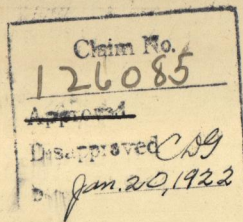 Claim No.
126085
Approved
Disapproved CDG
Date Jan. 20, 1922